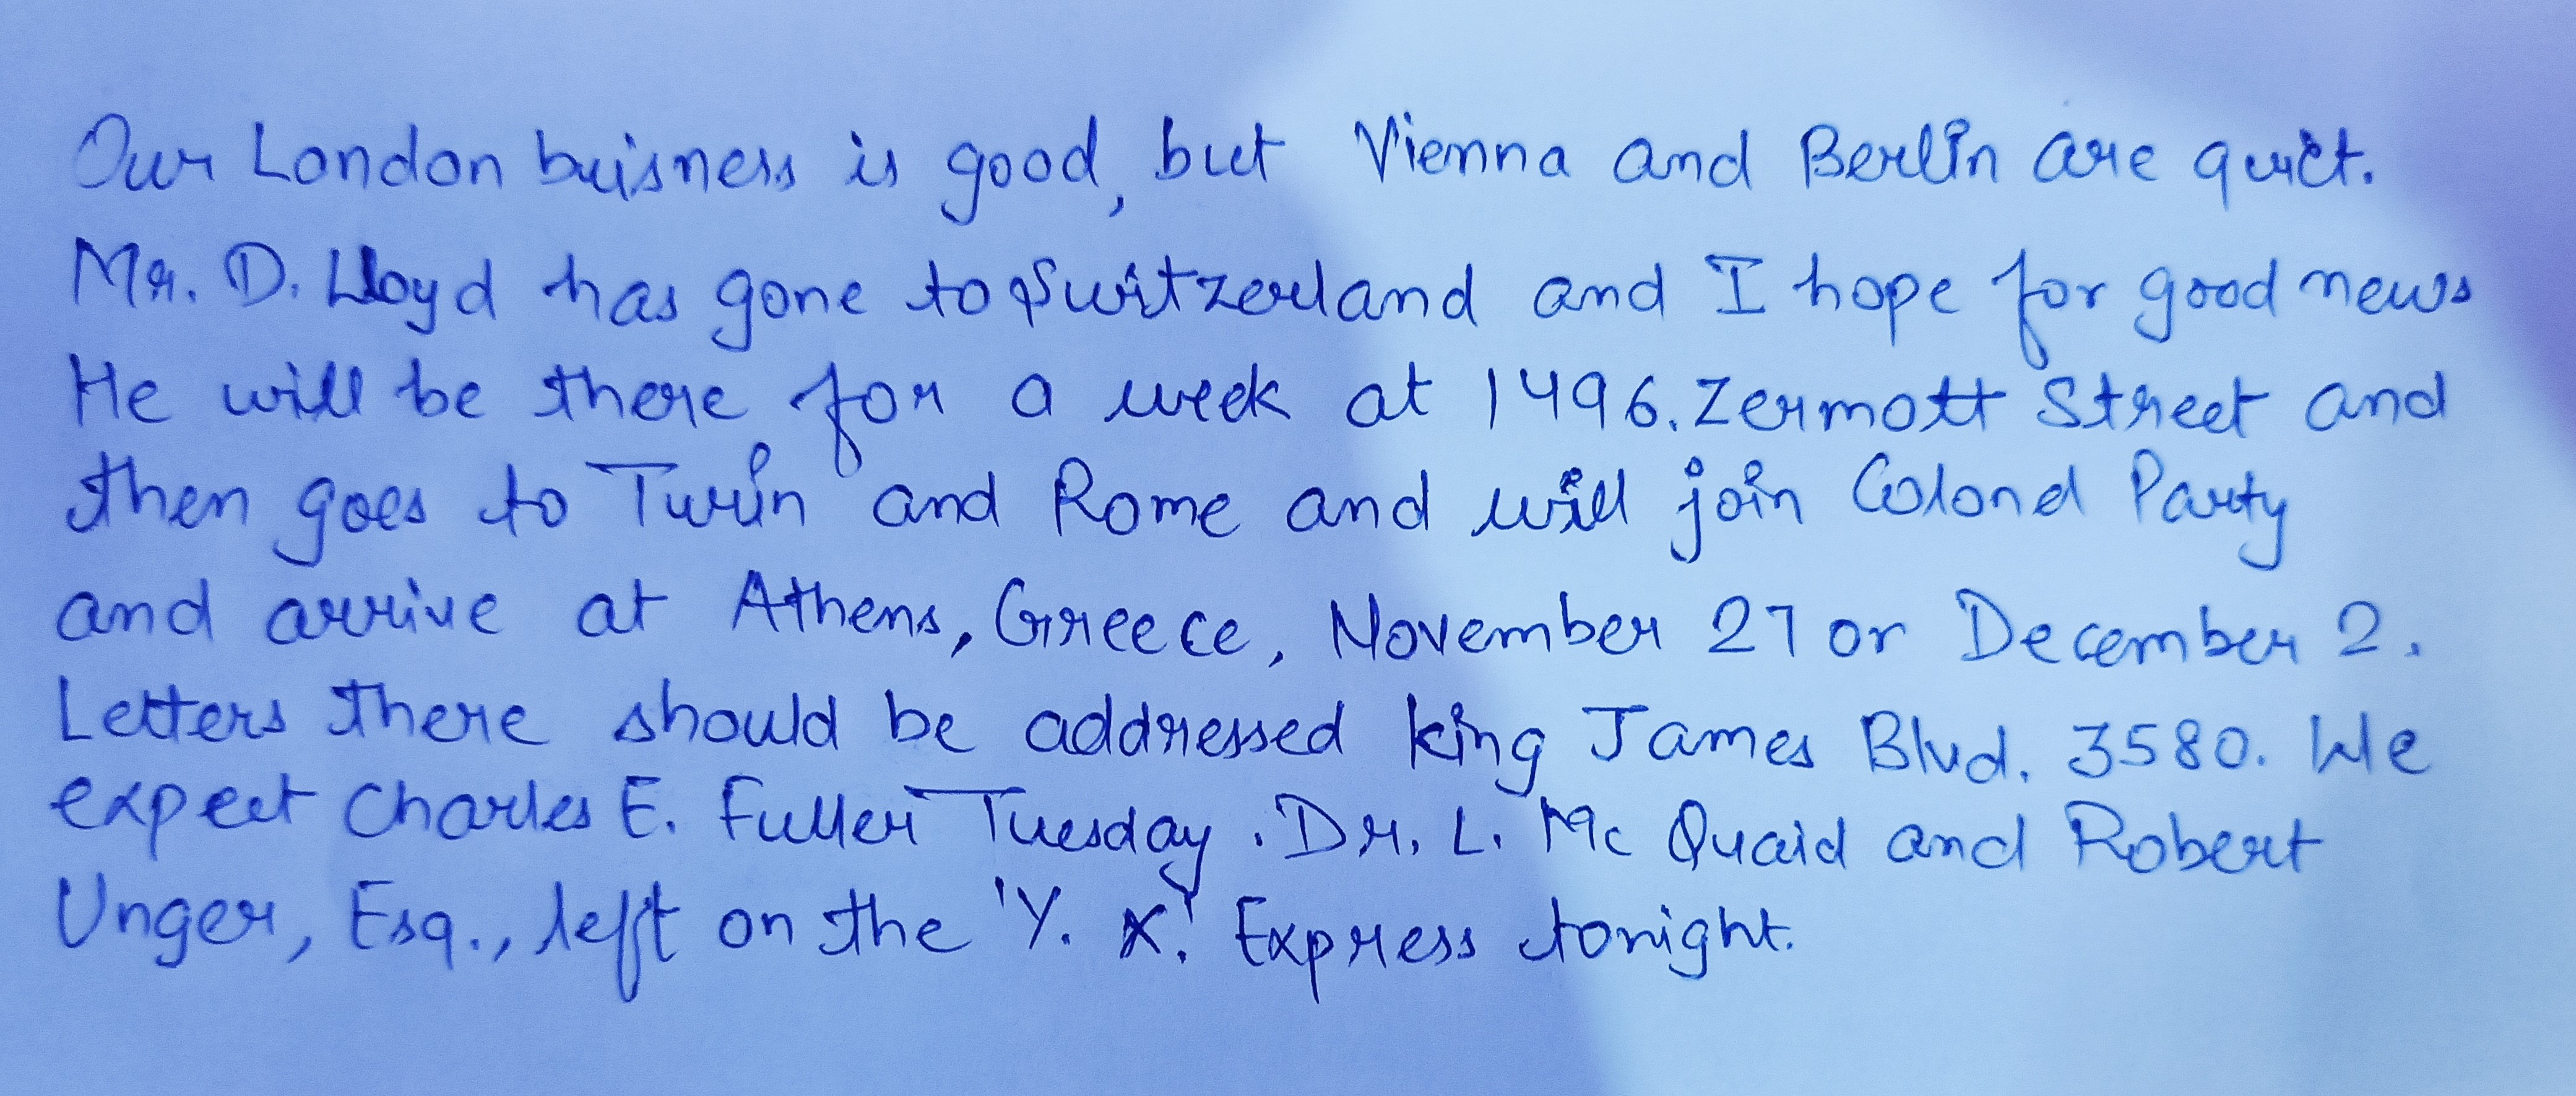 Our London buisness is good, but Vienna and Berlin are quiet.
Mr. D. Lloyd has gone to Switzerland and I hope for good news
He will be there for a week at 1496. Zermott Street and
then goes to Turin and Rome and will join Colond Party
and arrive at Athens, Greece, November 27 or December 2.
Letters there should be addressed king James Blvd. 3580. We
expect Charles E. Fuller Tuesday. Dr. L. Mc Quaid and Robert
Unger, Esq., left on the 'Y. X.' Express tonight.